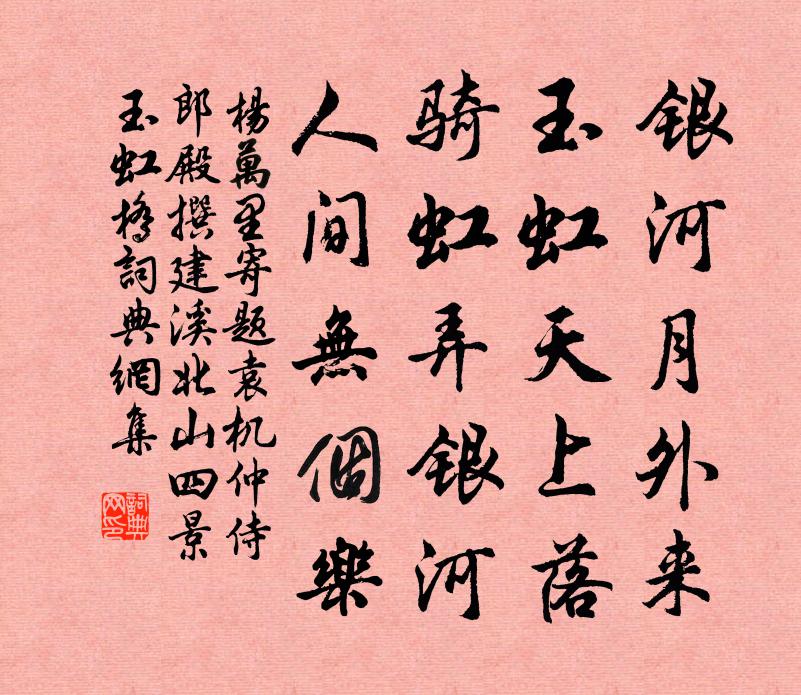 銀河月外来
玉虹天上落
騎虹弄銀河
人間無個樂
楊萬里寄題袁机仲侍
郎殿撰建溪北山四景
玉虹橋詞典網集
詞典網印